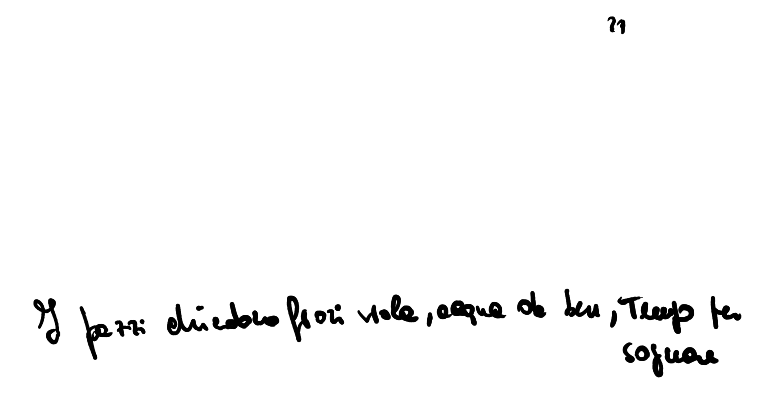 21
I pazzi chiedono fiori viola, acqua da bere, Tempo per
sognare